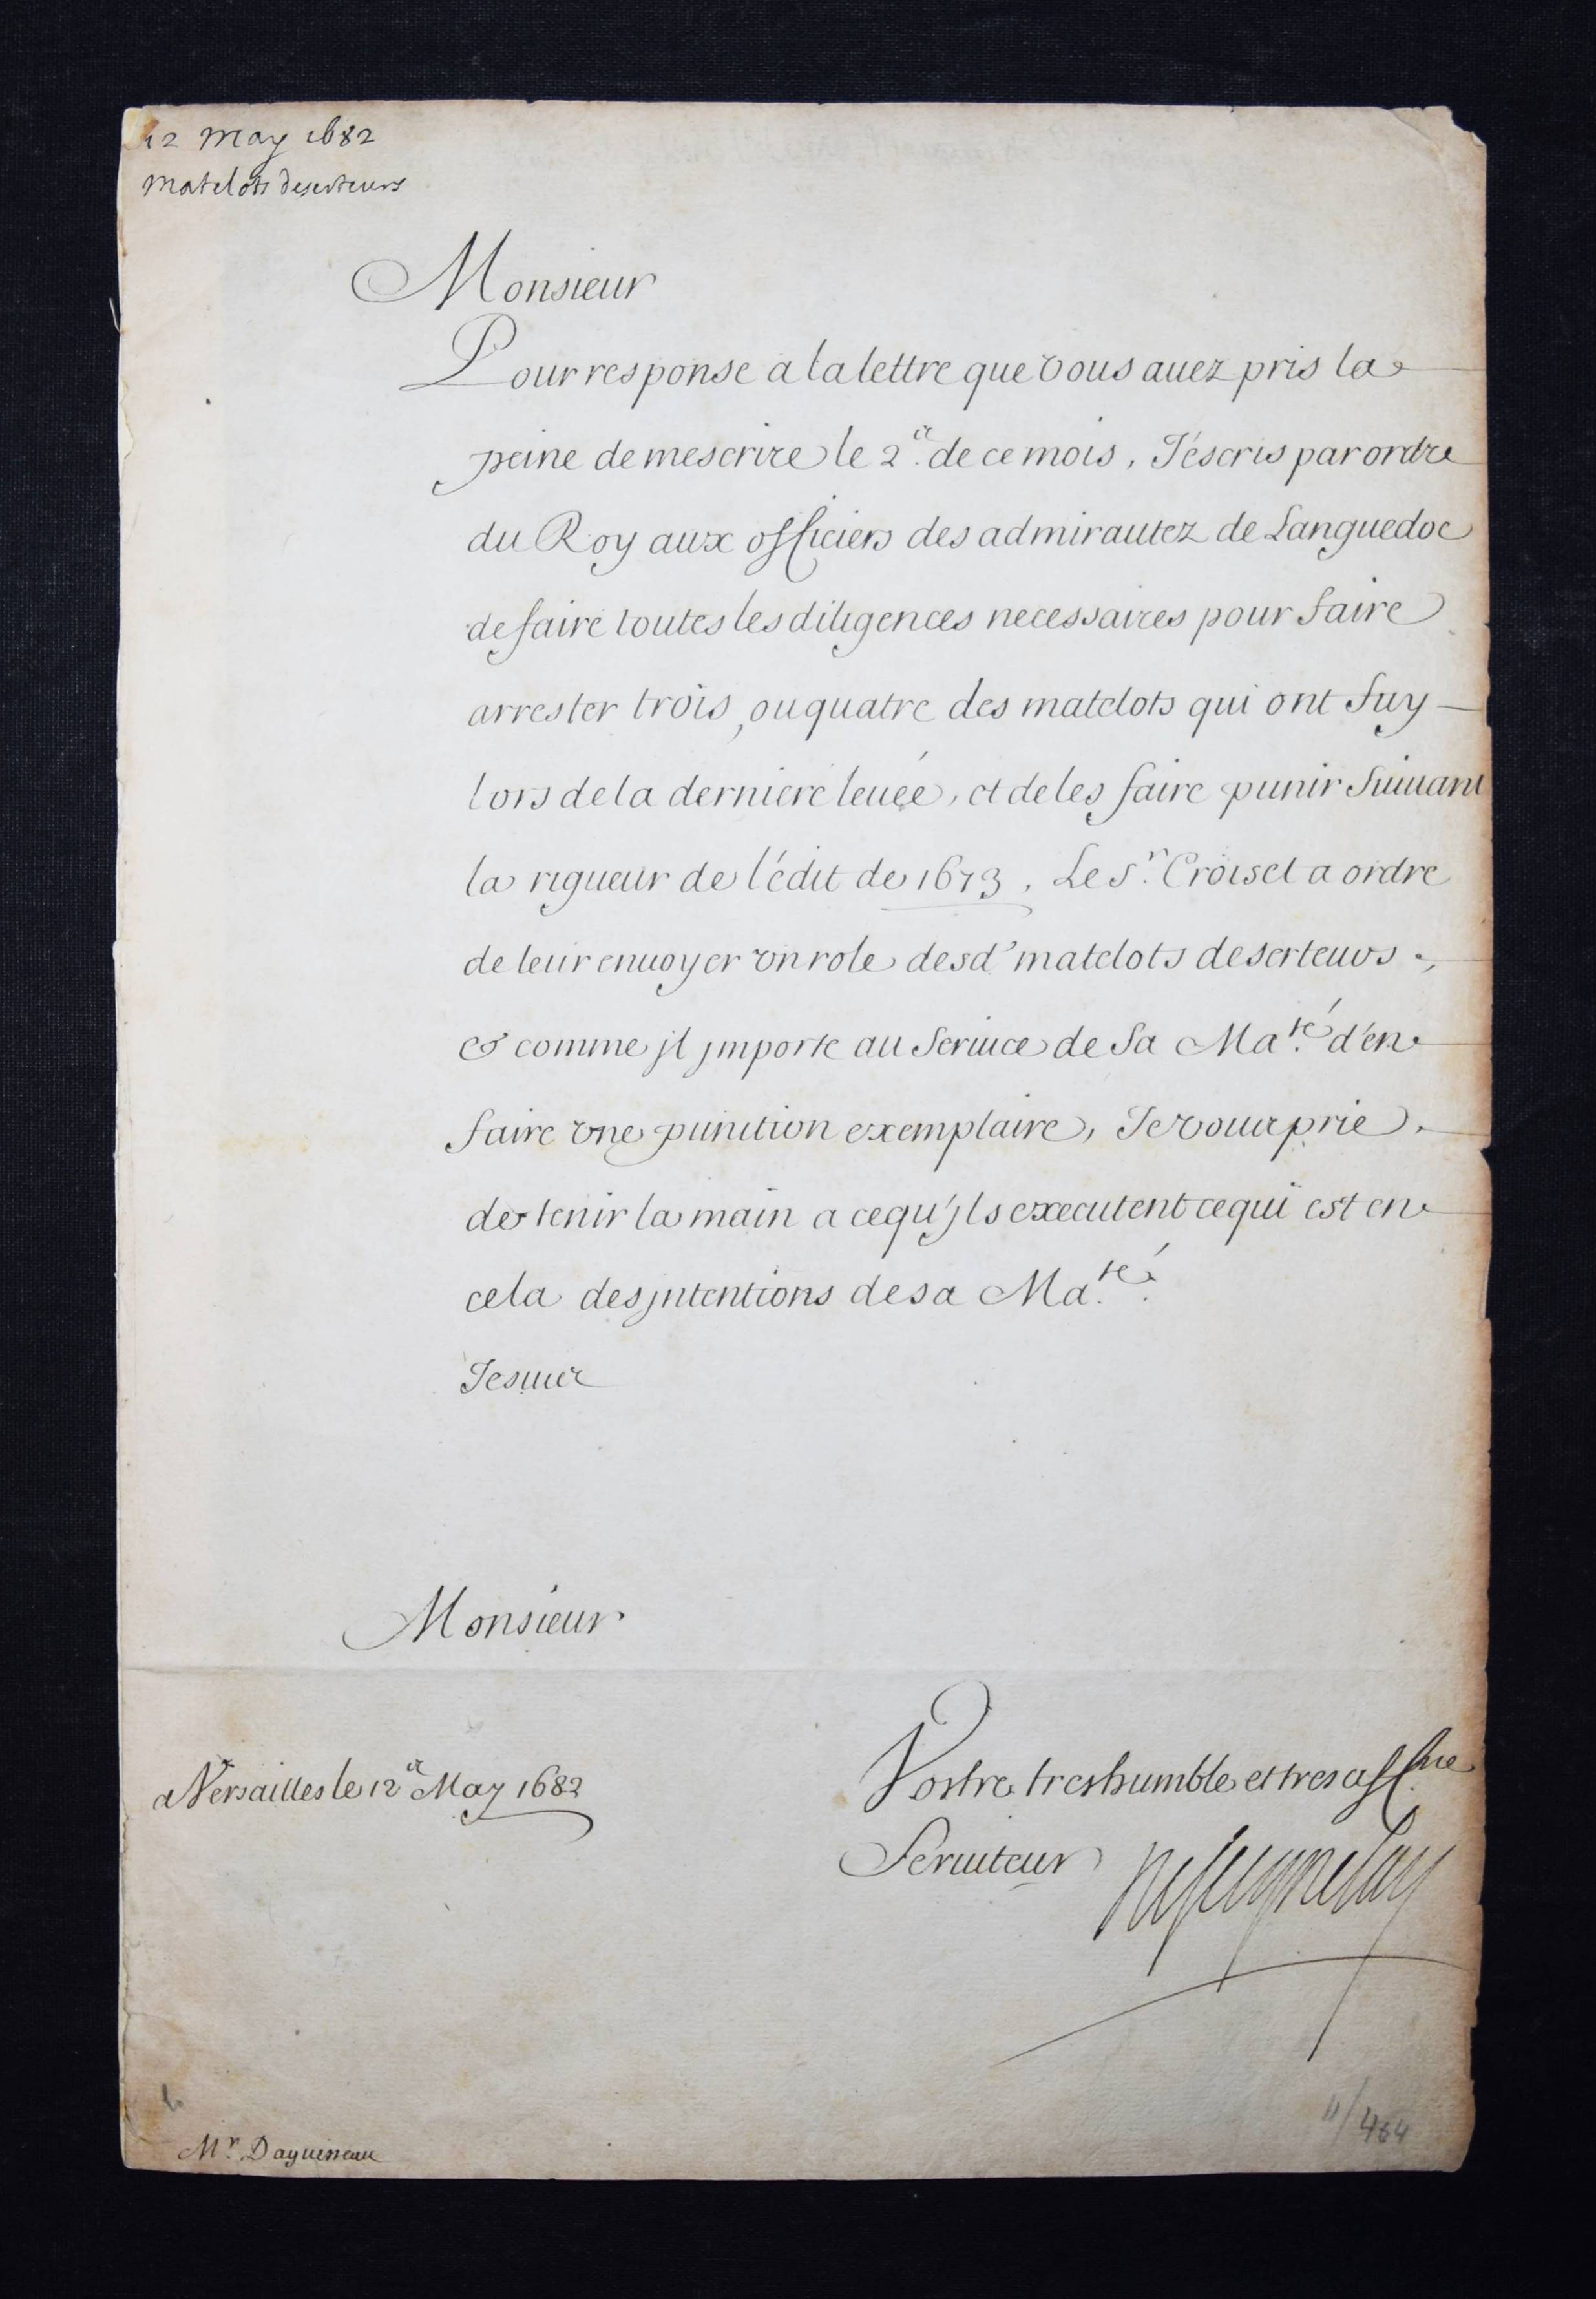 12 May 1682
Matelots deserteurs
Monsieur
Pour response a la lettre que vous auez pris la
peine de mescrire le 2.e de ce mois, J'éscris par ordre
du Roy aux officiers des admirautez de Languedoc
de faire toutes les diligences necessaires pour faire
arrester trois, ou quatre des matelots qui ont fuy
lors de la derniere leuée, et de les faire punir suiuant
la rigueur de l'édit de 1673. Le S.r Croiset a ordre
de leur enuoyer vn role desd' matelots deserteurs.,
& comme jl jmporte au seruice de Sa Ma.té d'en
faire vne punition exemplaire, Je vous prie.
de tenir la main a ce qu'jls executent ce qui est en
cela des jntentions de sa Ma.té
Je suis
Monsieur
a Versailles le 12.e May 1682
Vostre tres humble et tres aff.ne
Seruiteur Seignelay
M.r Daguesseau
11/464